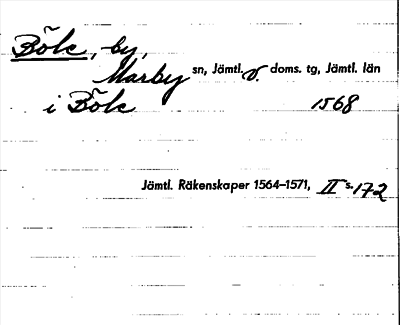 Böle, by,
Marby sn, Jämtl. v. doms. tg, Jämtl. län
i Böle 1568
Jämtl. Räkenskaper 1564–1571, II s. 172